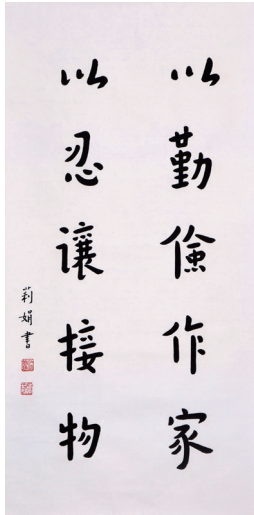 以勤儉作家
以忍讓接物
莉娟書